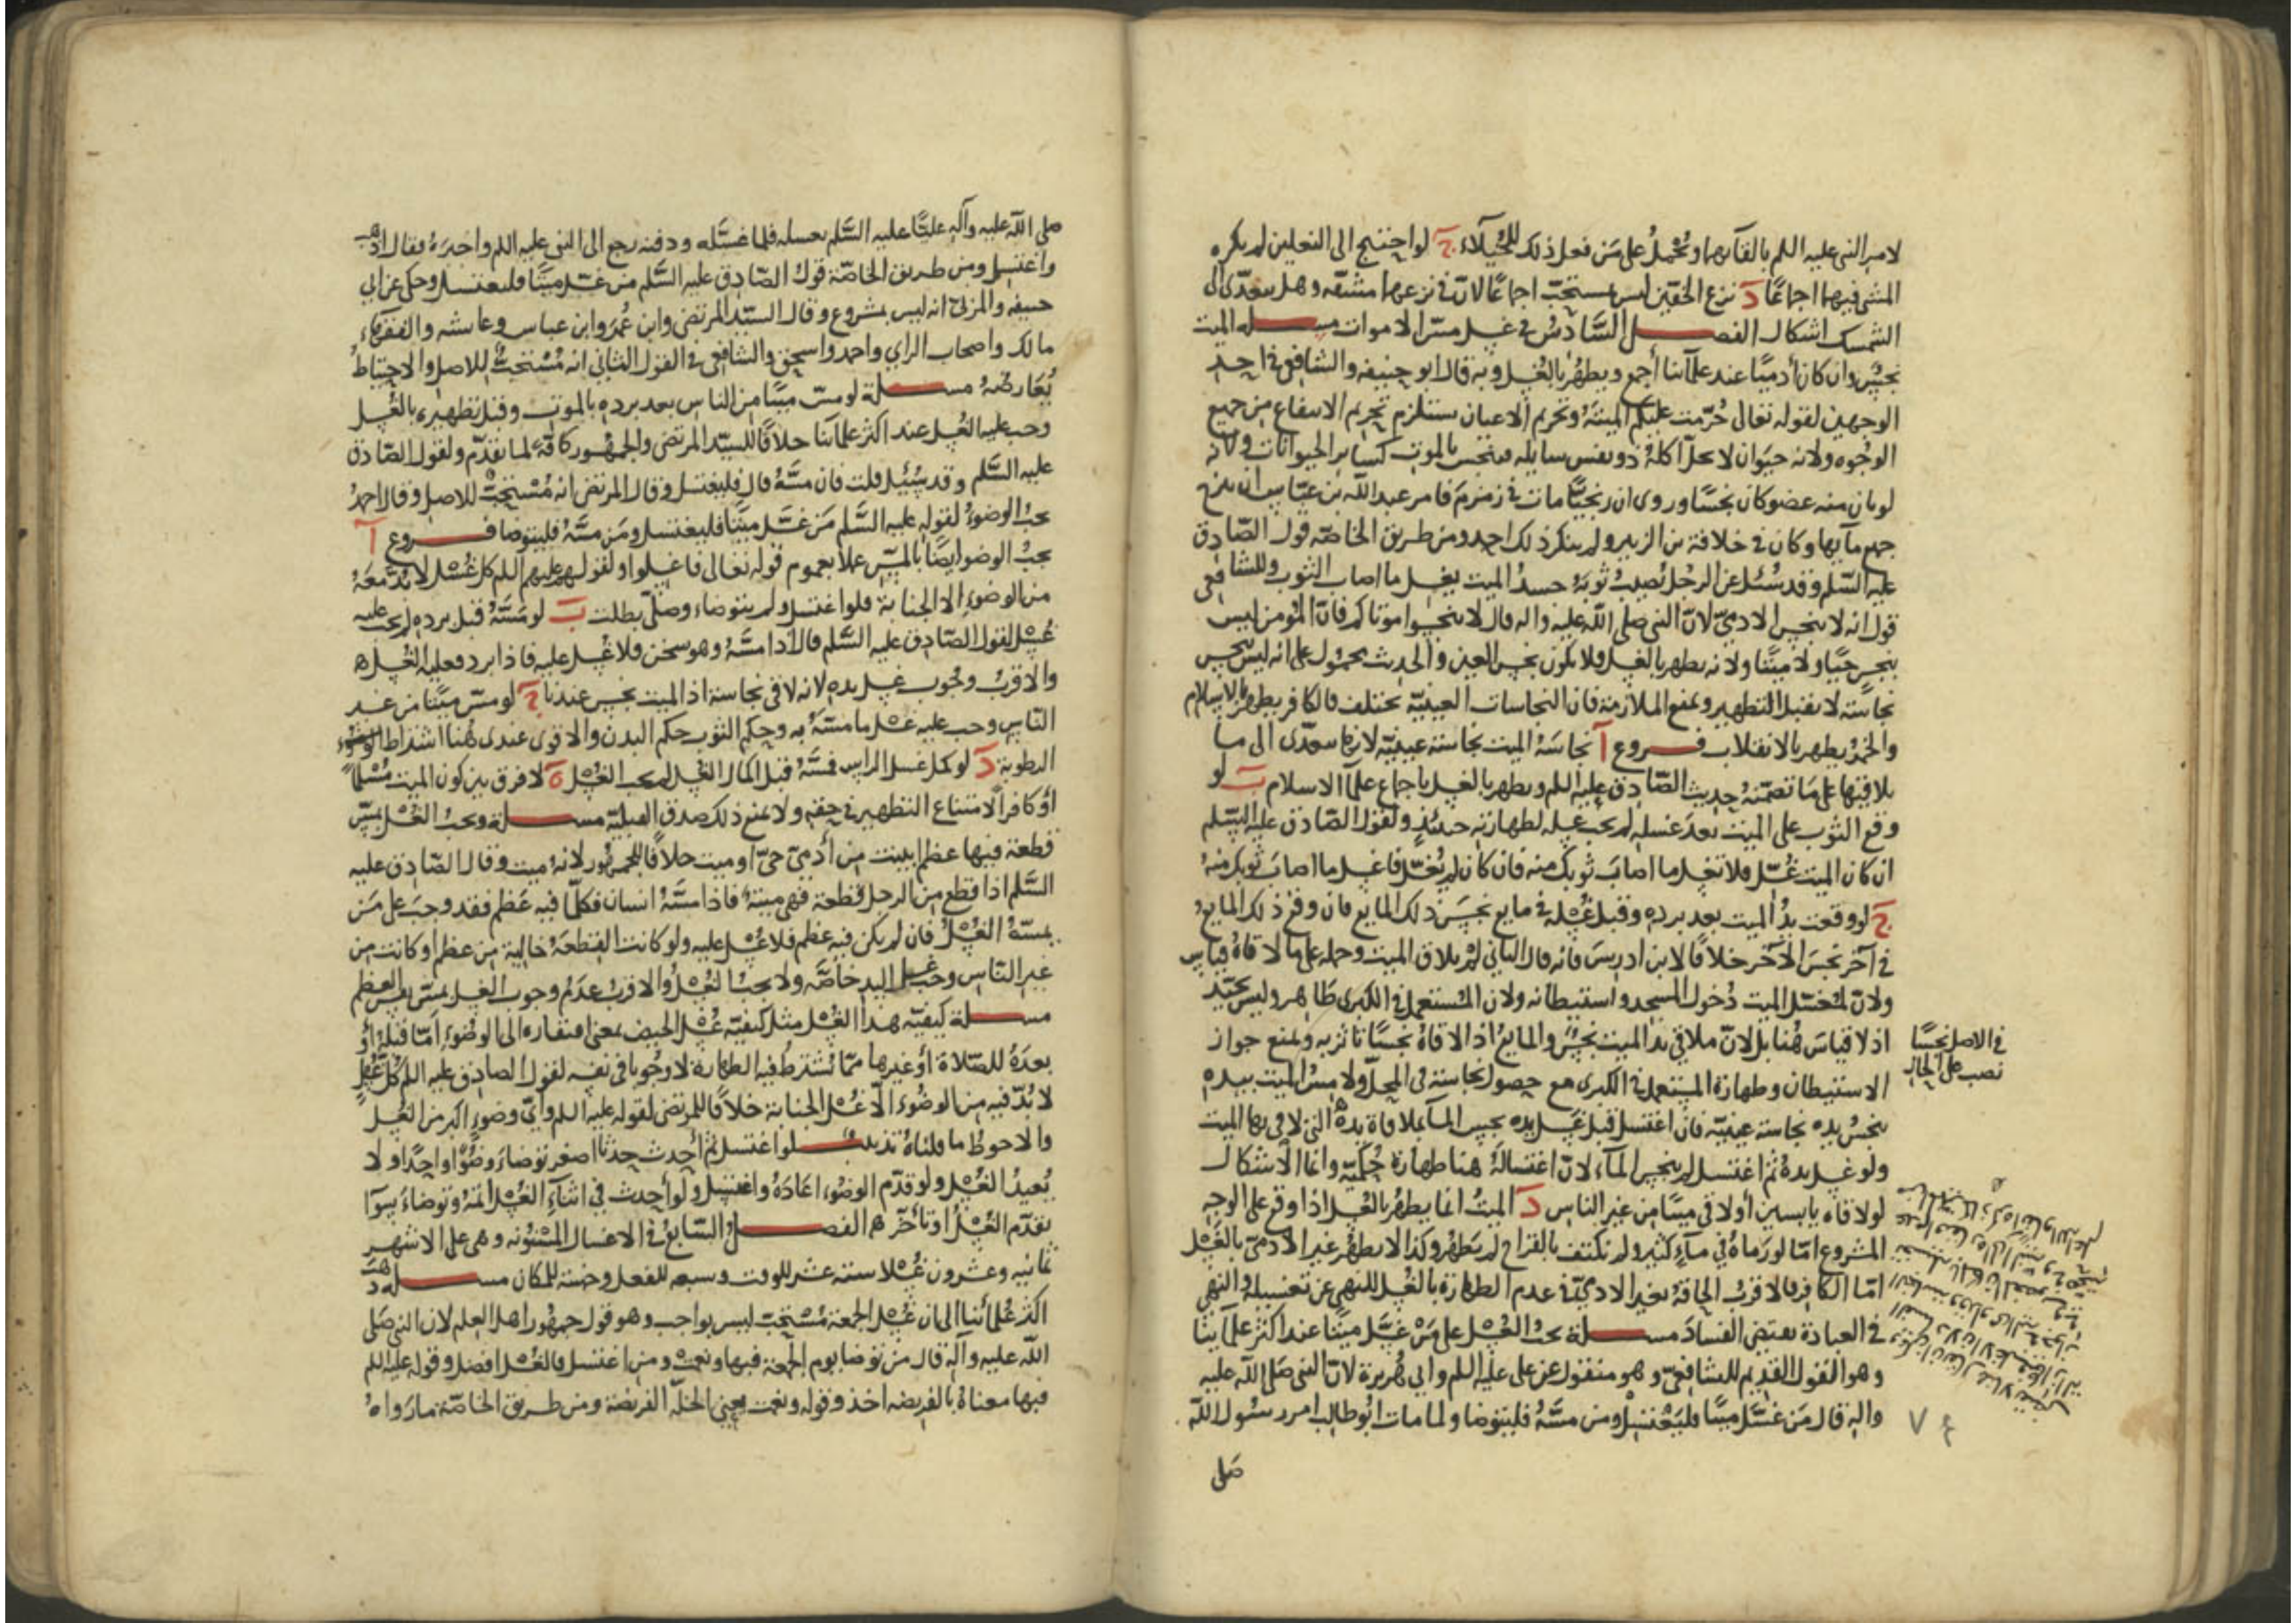 لامر النبي عليه السلم بالقائهما ويحمل على من فعل ذلك للخيلاء ج لو احتيج الى النعلين لم يكره
المشي فيهما اجماعا د نزع الخفين ليس بمستحب اجماعا لان في نزعهما مشقة وهل يتعدى الى
الشمسك اشكال الفصل السادس في غسل مس الاموات مسلة الميت
نجس وان كان آدميا عند علمآئنا أجمع ويطهر بالغسل وبه قال ابو حنيفة والشافعي في احد
الوجهين لقوله تعالى حرمت عليكم الميتة وتحريم الاعيان يستلزم تحريم الانتفاع من جميع
الوجوه ولانه حيوان لا يحل اكله ذو نفس سايله فينجس بالموت كساير الحيوانات ولانه
لو بان منه عضو كان نجسا وروى ان زنجيا مات في زمزم فامر عبد الله بن عباس ان ينزح
جميع مآئها وكان في خلافة بن الزبير ولم ينكر ذلك احد ومن طريق الخاصة قول الصادق
عليه السلم وقد سئل عن الرجل يصيب ثوبه جسد الميت يغسل ما اصاب الثوب وللشافعي
قول انه لا ينجس الادمي لان النبي صلى الله عليه واله قال لا تنجسوا موتاكم فان المؤمن ليس
بنجس حيا ولا ميتا ولانه يطهر بالغسل فلا يكون نجس العين والحديث محمول على انه ليس بنجس
نجاسته لا يقبل التطهير ونمنع الملازمة فان النجاسات العينية تختلف فالكافر يطهر بالاسلام
والخمر يطهر بالانقلاب فروع آ نجاسة الميت نجاسة عينية لانها يتعدى الى ما
يلاقيها على ما تضمنه حديث الصادق عليه السلم ويطهر بالغسل باجماع علمآ الاسلام ب لو
وقع الثوب على الميت بعد غسله لم يجب غسله لطهارته حينئذ ولقول الصادق عليه السلم
ان كان الميت غسل فلا تغسل ما اصاب ثوبك منه فان كان لم يغسل فاغسل ما اصاب ثوبك منه
ج لو وقعت يد الميت بعد برده وقبل غسله في مايع نجس ذلك المايع فان وقع ذلك المايع
في آخر نجس الآخر خلافا لابن ادريس فانه قال الثاني لم يلاق الميت وحمله على ما لاقاه قياس
ولان لمغسل الميت دخول المسجد واستيطانه ولان المستعمل في الكبرى طاهر وليس بجيد
اذ لا قياس هنا بل لان ملاقي يد الميت نجس والمايع اذا لاقاه نجسا تاثر به ونمنع جواز
الاستيطان وطهارة المستعمل في الكبرى مع حصول نجاسة في المحل ولا مس الميت بيده
ينجس يده نجاسة عينية فان اغتسل قبل غسل يده نجس المآء بملاقاة يده التي لاقى بها الميت
ولو غسل يده ثم اغتسل لم ينجس المآء لان اغتساله هنا طهارة حكمية وانما الاشكال
لو لاقاه يابسين أو لاقى ميتا من غير الناس د الميت انما يطهر بالغسل اذا وقع على الوجه
المشروع امّا لو رماه في مآء كثير ولم نكتف بالقراح لم يطهر وكذا لا يطهر غير الآدمي بالغسل
امّا الكافر فالاقرب الحاقه بغير الادمي في عدم الطهارة بالغسل للنهي عن تغسيله والنهي
في العبادة يقتضي الفساد مسلة يجب الغسل على من غسل ميتا عند اكثر علمآئنا
وهو القول القديم للشافعي وهو منقول عن علي عليه السلم وابي هريرة لان النبي صلى الله عليه
واله قال من غسل ميتا فليغتسل ومن مسه فليتوضا ولما مات ابو طالب امر رسول الله
صلى
في الاصل نجسا
نصب على الحال
صلى الله عليه وآله عليا عليه السلم بغسله فلما غسله ودفنه رجع الى النبي عليه السلم واخبره فقال اذهب
واغتسل ومن طريق الخاصة قول الصادق عليه السلم من غسل ميتا فليغتسل وحكى عن ابي
حنيفه والمزني انه ليس بمشروع وقال السيد المرتضى وابن عمر وابن عباس وعايشه والفقهاء
مالك واصحاب الراي واحمد واسحق والشافعي في القول الثاني انه مستحب للاصل والاحتياط
يعارضه مسلة لو مس ميتا من الناس بعد برده بالموت وقبل تطهيره بالغسل
وجب عليه الغسل عند اكثر علمآئنا خلافا للسيد المرتضى والجمهور كافة لما تقدم ولقول الصادق
عليه السلم وقد سئل قلت فان مسه قال فليغتسل وقال المرتضى انه مستحب للاصل وقال احمد
يجب الوضوء لقوله عليه السلم من غسل ميتا فليغتسل ومن مسه فليتوضا فروع آ
يجب الوضو ايضا بالمس عملا بعموم قوله تعالى فاغسلوا ولقولهم عليهم السلم كل غسل لا بد معه
من الوضوء الا الجنابة فلو اغتسل ولم يتوضاء وصلى بطلت ب لو مسه قبل برده لم يجب عليه
غسل لقول الصادق عليه السلم قال اذا مسه وهو سخن فلا غسل عليه فاذا برد فعليه الغسل
والاقرب وجوب غسل يده لانه لاقى نجاسة اذ الميت نجس عندنا ج لو مس ميتا من غير
الناس وجب عليه غسل ما مسه به وحكم الثوب حكم البدن والاقوى عندى هنا اشتراط
الرطوبة د لو كمل غسل الراس فمسه قبل اكمال الغسل لم يجب الغسل ه لا فرق بين كون الميت مسلما
أو كافرا لامتناع التطهير في حقه ولا يمنع ذلك صدق القبلية مسلة ويجب الغسل بمس
قطعة فيها عظم ابينت من آدمي حي او ميت خلافا للجمهور لانه ميت وقال الصادق عليه
السلم اذا قطع من الرجل قطعة فهي ميتة فاذا مسه انسان فكلما فيه عظم فقد وجب على من
يمسه الغسل فان لم يكن فيه عظم فلا غسل عليه ولو كانت القطعة خالية من عظم او كانت من
غير الناس وجب غسل اليد خاصة ولا يجب الغسل والاقرب عدم وجوب الغسل بمس نفس العظم
مسلة كيفية هذا الغسل مثل كيفية غسل الحيض بمعنى افتقاره الى الوضوء امّا قبله أو
بعده للصلاة أو غيرها ممّا يشترط فيه الطهارة لا وجوبا في نفسه لقول الصادق عليه السلم كل غسل
لا بد فيه من الوضوء الّا غسل الجنابة خلافا للمرتضى لقوله عليه السلم وأيّ وضوء اكبر من الغسل
والاحوط ما قلناه تذنيب لو اغتسل ثم أحدث حدثا اصغر توضاء وضوءا واحدا ولا
يعيد الغسل ولو قدم الوضوء اعاده واغتسل ولو أحدث في اثناء الغسل اتمه وتوضاء سوآ
تقدم الغسل او تأخر الفصل السابع في الاغسال المسنونه وهي على الاشهر
ثمانيه وعشرون غسلا ستة عشر للوقت وسبعه للفعل وخمسة للمكان مسلة ذهب
اكثر علمائنا الى ان غسل الجمعة مستحب ليس بواجب وهو قول جمهور اهل العلم لان النبي صلى
الله عليه وآله قال من توضا يوم الجمعة فبها ونعمت ومن اغتسل فالغسل افضل وقوله عليه السلم
فبها معناه بالفريضه اخذ وقوله ونعمت يعني الخلّة الفريضة ومن طريق الخاصة ما رواه